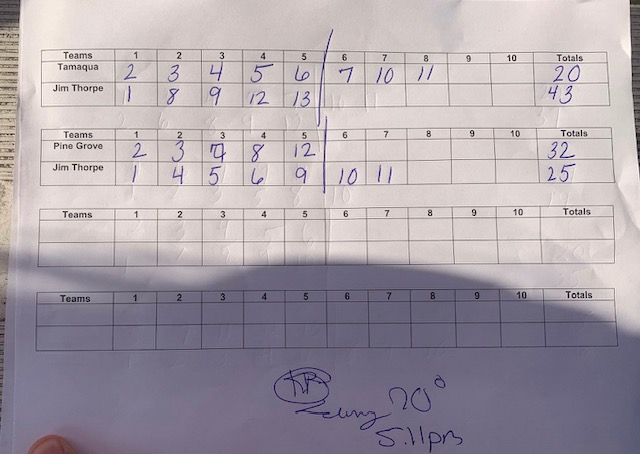 Teams 1 2 3 4 5 6 7 8 9 10 Totals
Tamaqua 2 3 4 5 6 7 10 11 20
Jim Thorpe 1 8 9 12 13 43
Teams 1 2 3 4 5 6 7 8 9 10 Totals
Pine Grove 2 3 7 8 12 32
Jim Thorpe 1 4 5 6 9 10 11 25
Teams 1 2 3 4 5 6 7 8 9 10 Totals
Teams 1 2 3 4 5 6 7 8 9 10 Totals
70°
5:11pm